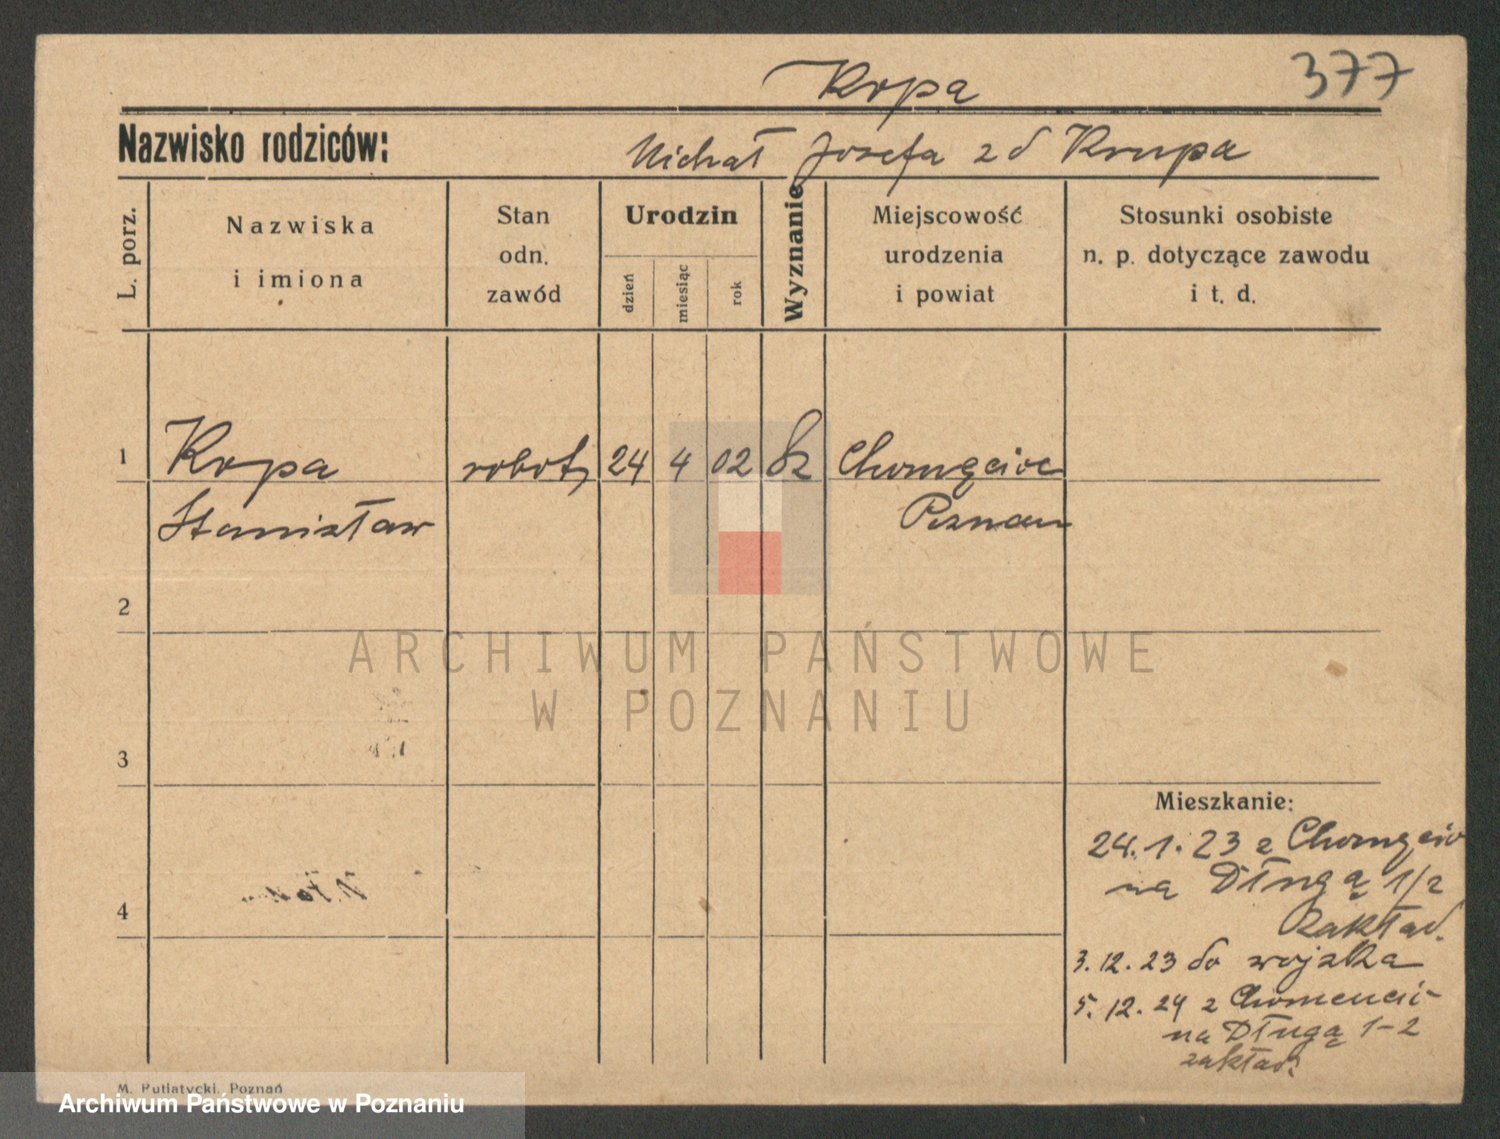 Kopa
377
Nazwisko rodziców:
Michał Józefa z d Krupa
L. porz.
Nazwiska
i imiona
Stan
odn.
zawód
Urodzin
dzień
miesiąc
rok
Wyznanie
Miejscowość
urodzenia
i powiat
Stosunki osobiste
n. p. dotyczące zawodu
i t. d.
1
Kopa
robot
24
4
02
Chomęcice
Stanisław
Poznan
2
3
4
Mieszkanie:
24.1.23 z Chomęcic
na Długą 1/2
zakład.
3.12.23 do wojska
5.12.24 z Chomencic
na Długą 1-2
zakład.
M. Putiatycki, Poznań
ARCHIWUM PAŃSTWOWE
W POZNANIU
Archiwum Państwowe w Poznaniu